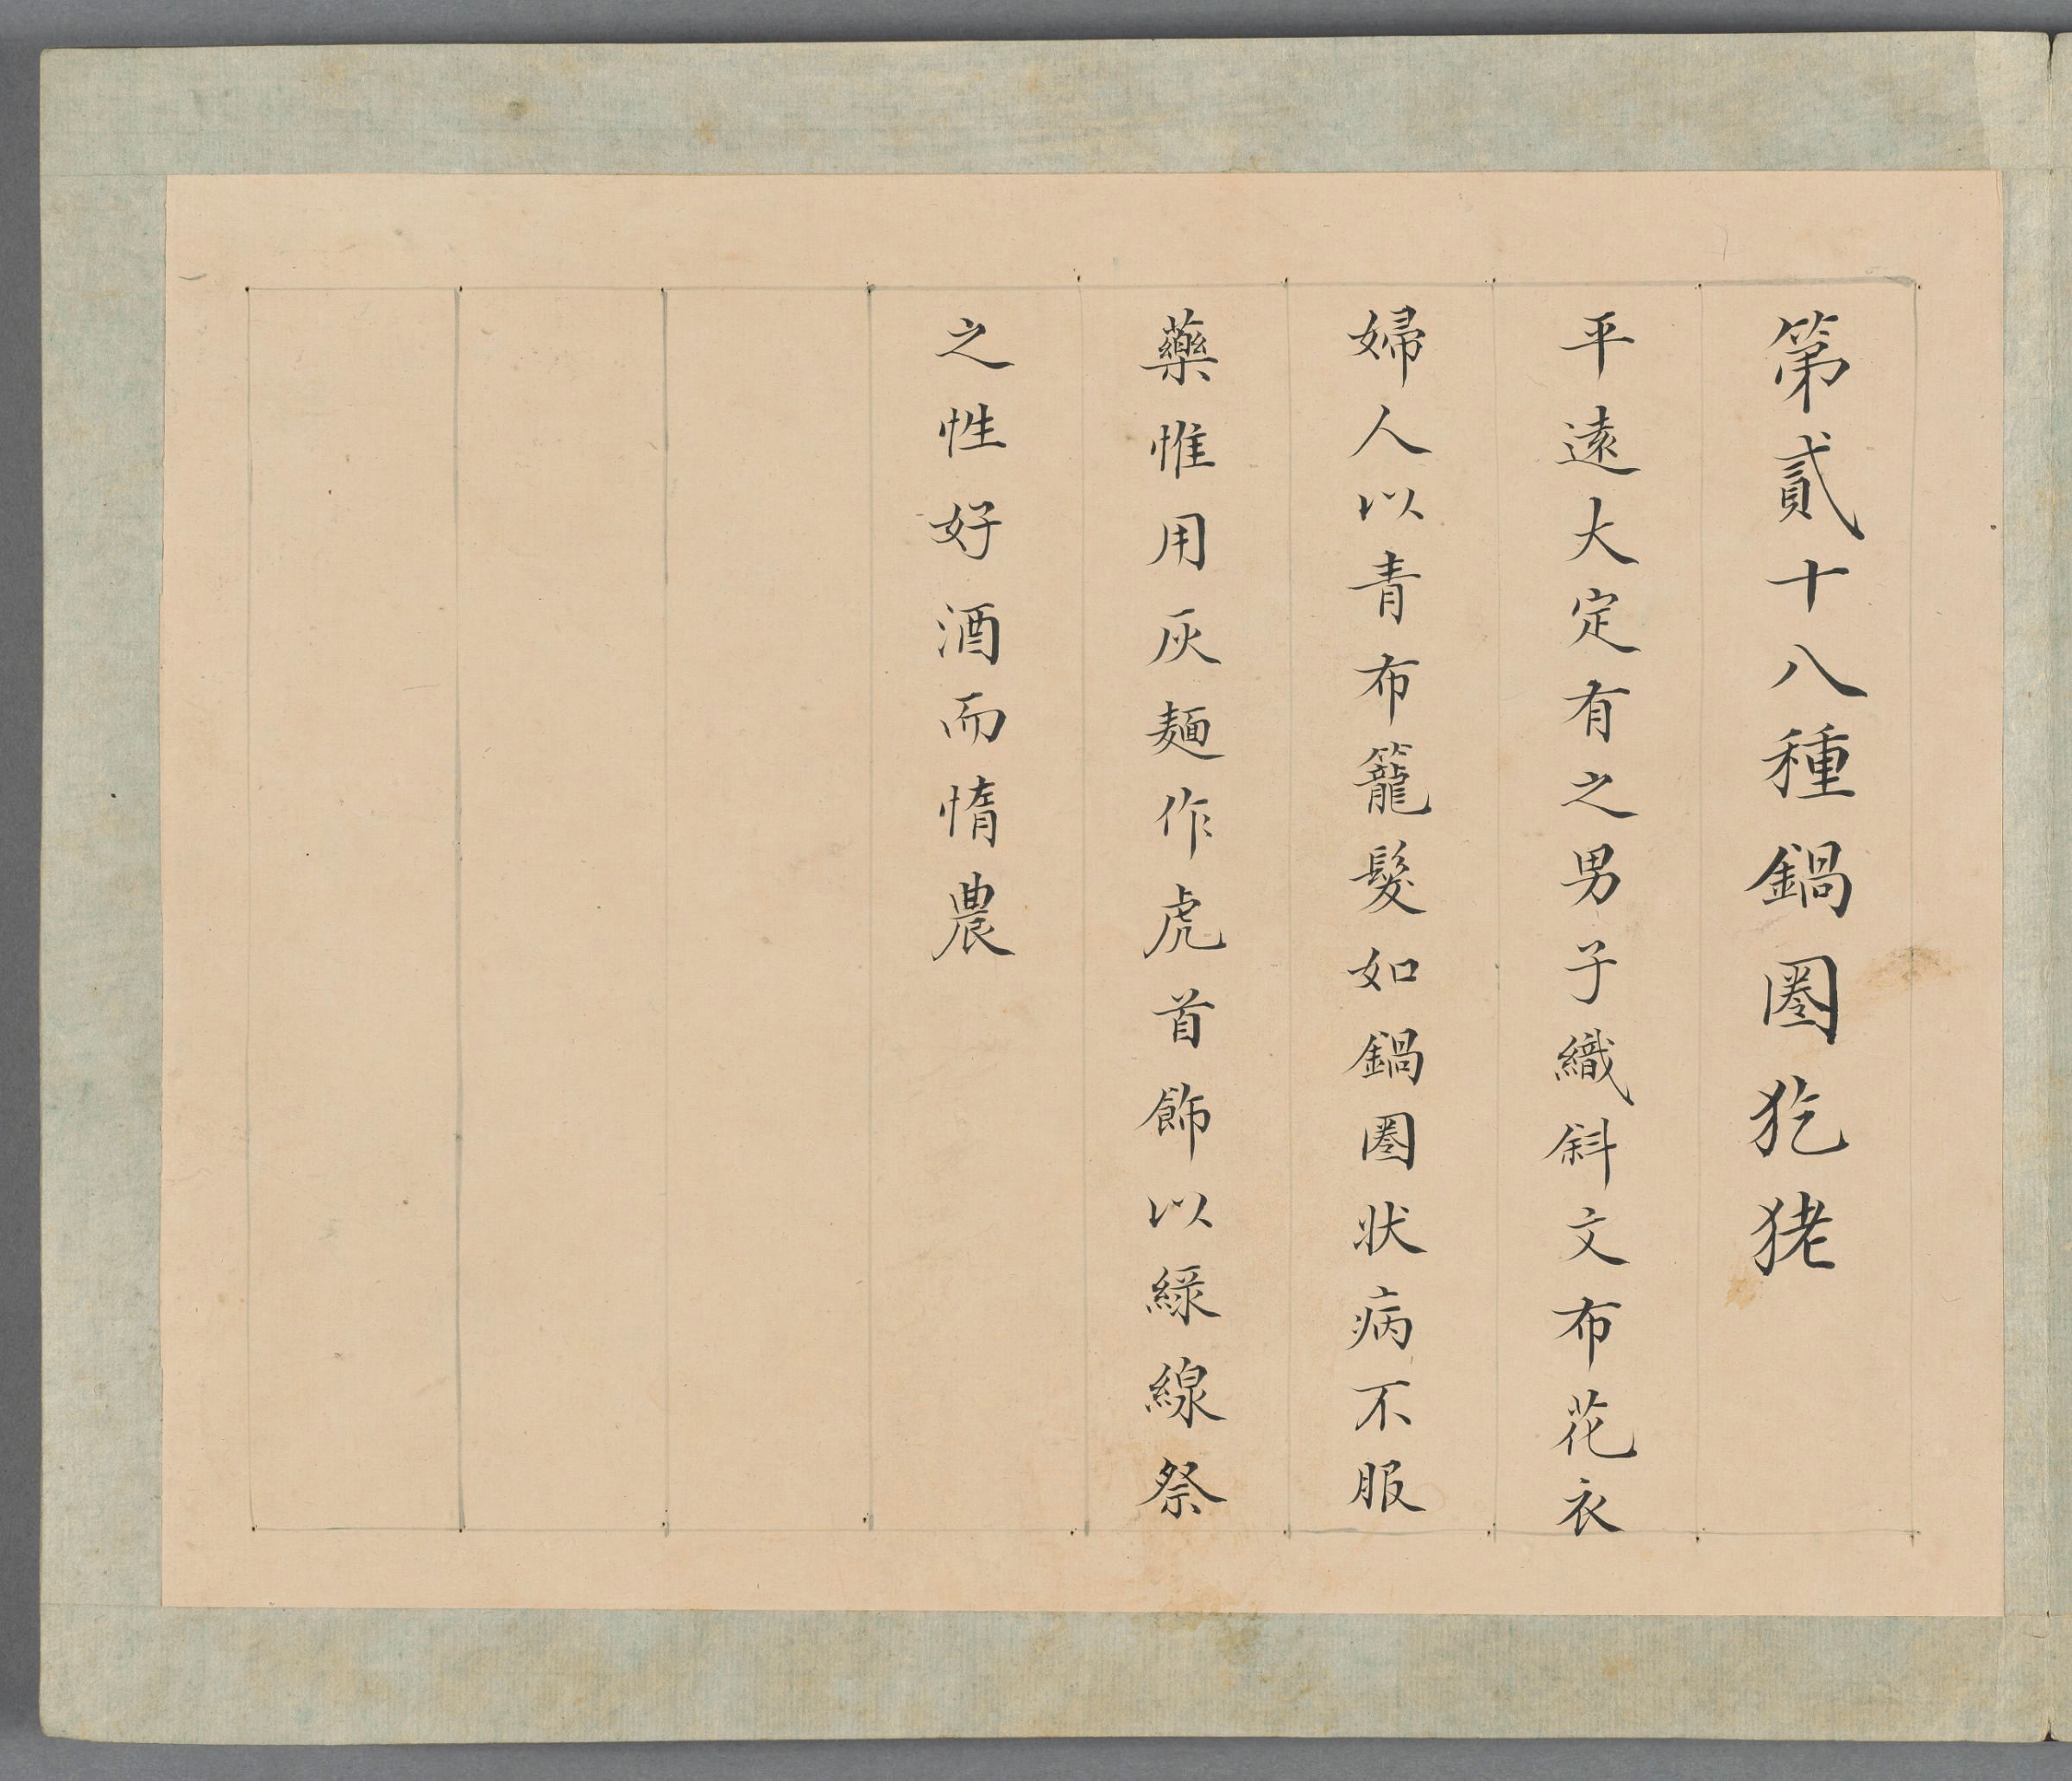 第貳十八種鍋圈犵狫
平遠大定有之男子織斜文布花衣
婦人以青布籠髮如鍋圈狀病不服
藥惟用灰麺作虎首飾以綵線祭
之性好酒而惰農